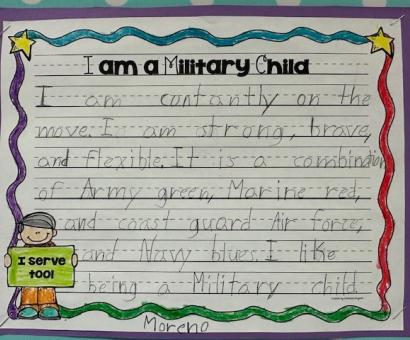 I am a Military Child
I am contantly on the
move. I am strong, brave,
and flexible. It is a combination
of Army green, Marine red,
and coast guard Air force,
I serve
too!
and Navy blues. I like
being a Military child.
Moreno